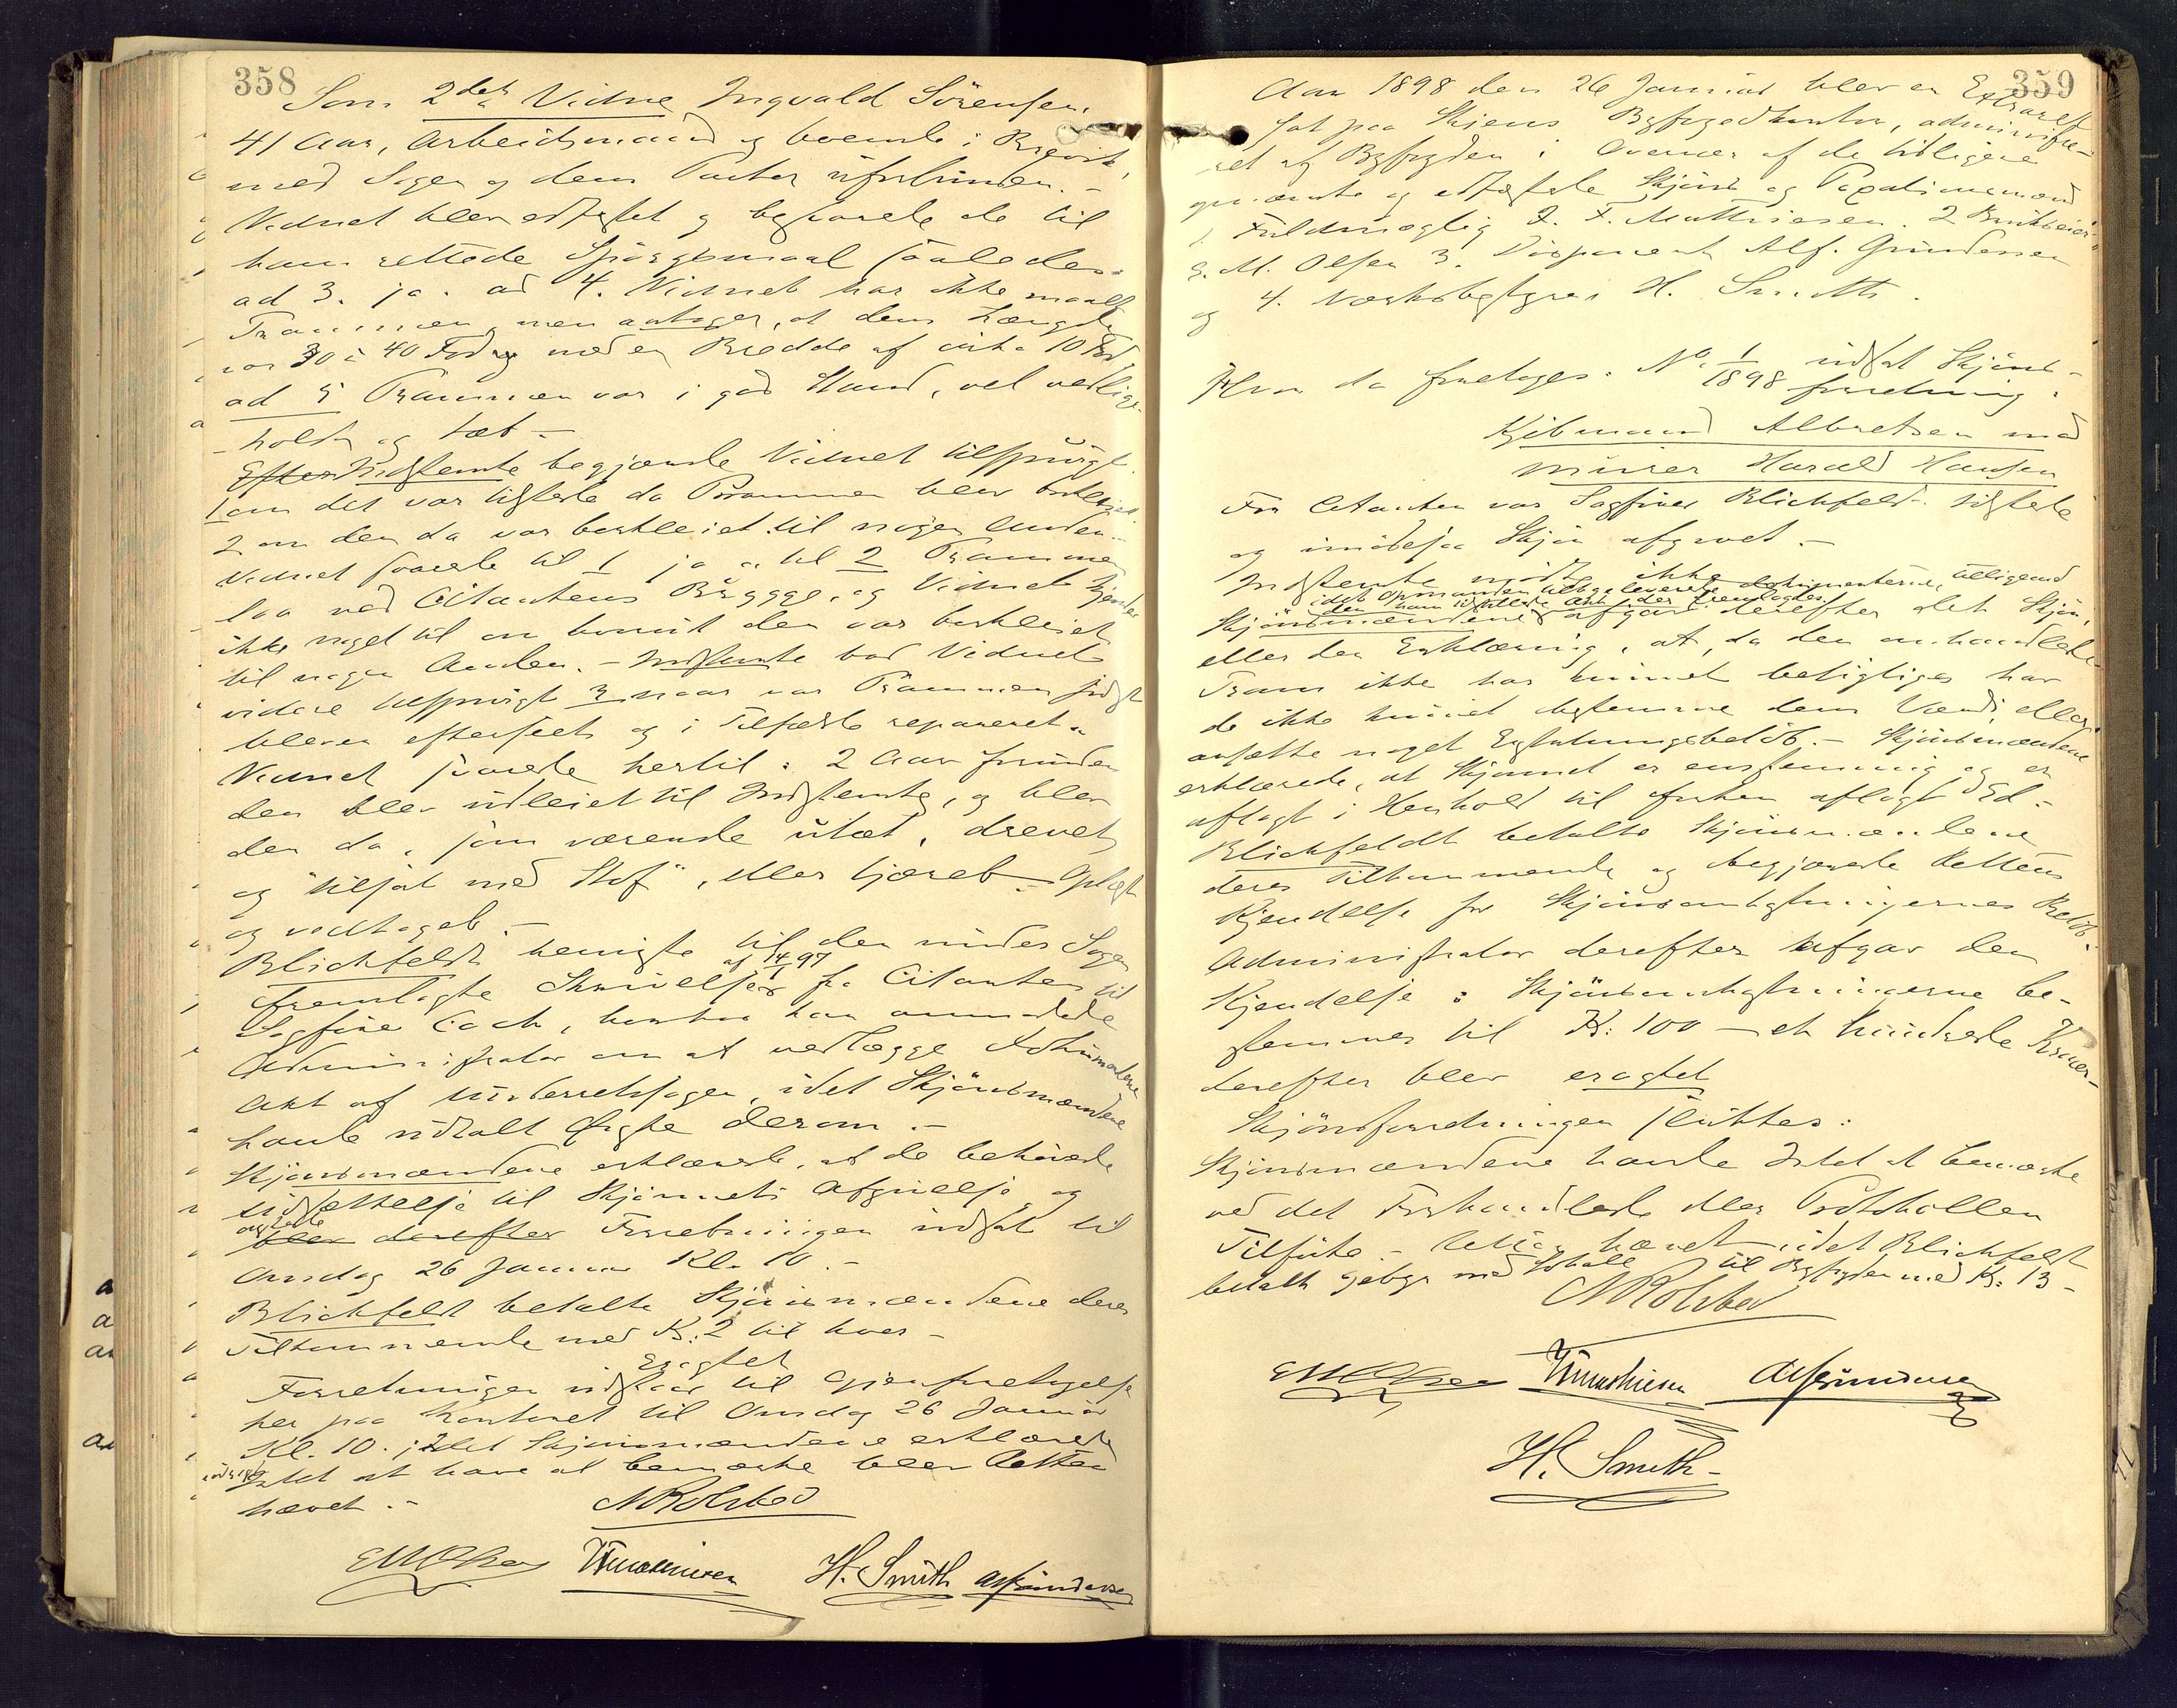 358
Som 2det Vidne Ingvald Sörensen,
41 Aar, Arbeidsmand og boende i Brevik,
med Sagen og dens Parter uforbunden. -
Vidnet blev edfæstet og besvarede de til
ham rettede Spörgsmaal saaledes:
ad 3. ja. ad 4. Vidnet har ikke maalt
Prammen, men antager, at dens Længde
var 30 à 40 Fod og med en Bredde af cirka 10 Fod
ad 5 Prammen var i god Stand, vel vedlige-
holdt og tæt -
Efter Indstevnte begjærede Vidnet tilspurgt
1 om det var tilstede da Prammen blev bortleiet.
2 om den da var bortleiet til nogen Anden. -
Vidnet svarede til 1 ja og til 2 Prammen
laa ved Citantens Brygge, og Vidnet kjender
ikke noget til om hvorvidt den var bortleiet
til nogen Anden. - Indstevnte bad Vidnet
videre tilspurgt 3 naar var Prammen sidst
bleven efterseet og i Tilfælde repareret.
Vidnet svarede hertil: 2 Aar forinden
den blev udleiet til Indstevnte, og blev
den da, som værende utæt, drevet
og "tilsat med Stof", eller tjæret. - Oplæst
og vedtaget. -
Blichfeldt henviste til den under Sagen
fremlagte Skrivelse af 14/1 97 fra Citanten til
Sagfører Coch, hvorhos han anmodede
Administrator om at vedlægge Dokumenterne
Akt af Underretssagen, idet Skjönsmændene
havde udtalt Önske derom. -
Skjönsmændene erklærede, at de behövede
Udsættelse til Skjönnets Afgivelse og
blev derefter Forretningen udsat til
Onsdag 26 Januar Kl. 10. -
Blichfeldt betalte Skjönsmændene deres
Tilkommende med Kr. 2 til hver -
Eragtet
Forretningen udstaar til Gjenforetagelse
her paa Kontoret til Onsdag 26 Januar
Kl. 10. idet Skjönsmændene erklærede
Intet at have at bemærke blev Retten
hævet. -
EMOlsen H. Smith
359
Aar 1898 den 26 Januar blev en Extraret
sat paa Skiens Byfogedkontor, administre-
ret af Byfogden i Overvær af de tidligere
opnævnte og edfæstede Skjöns og Taxationsmænd
1. Fuldmægtig J. F. Mathiesen. 2 Brukseier
E. M. Olsen 3. Disponent Alf. Gundersen
og 4. Værksbestyrer H. Smith.
Hvor da foretoges: No. 1/1898 udsat Skjöns-
forretning:
Kjöbmand Albretsen mod
murer Harald Hansen
For Citanten var Sagförer Blichfeldt tilstede
og imödesaa Skjön afgivet. -
Indstevnte mödte ikke
idet Opmanden tilbageleverede dokumenterne, tilligemed
den ham tilstillede Akt, der fremlagdes.
Skjönsmændene afgav derefter det Skjön,
eller den Erklæring, at, da den omhandlede
Pram ikke har kunnet besigtiges har
de ikke kunnet bestemme dens Værdi, eller
ansætte noget Erstatningsbelöb. - Skjönsmændene
erklærede, at Skjönnet er enstemmig og er
aflagt i Henhold til forhen aflagt Ed. -
Blichfeldt betalte Skjönsmændene
deres Tilkommende og begjærede Rettens
Kjendelse for Skjönsomkostningernes Belöb.
Administrator derefter afgav den
Kjendelse: Skjönsomkostningerne be-
stemmes til Kr: 100 - et hundrede Kroner -
derefter blev eragtet
Skjönsforretningen sluttes:
Skjönsmændene havde Intet at bemærke
ved det Forhandlede eller Protokollen
Tilförte. - Retten hævet idet Blichfeldt
betalte Gebyr med Tohold til Byfogden med Kr. 13 -
EMOlsen
H. Smith -